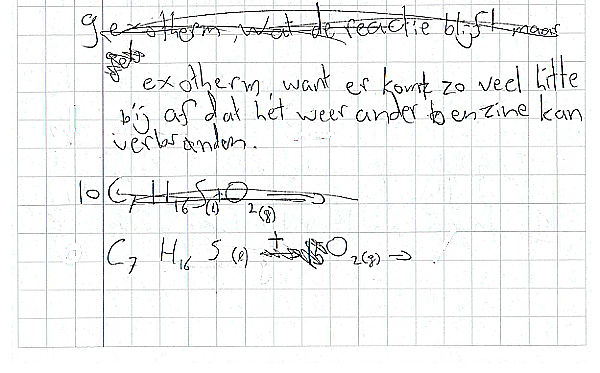 9 exotherm, want de reactie blijft maar
exotherm, want er komt zo veel hitte
bij af dat het weer ander benzine kan
verbranden.
10 C7H16S(l) O2(g) →
C7 H16 S (l) + O2(g) →